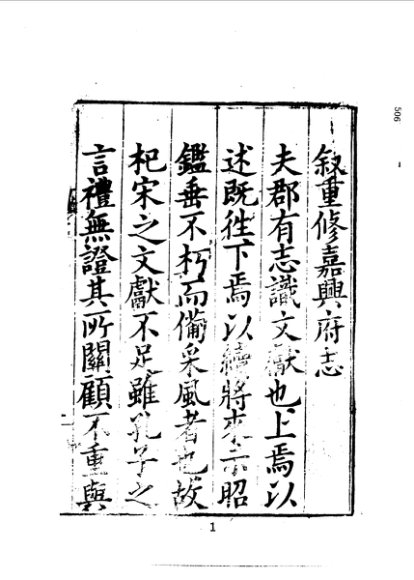 叙重修嘉興府志
夫郡有志識文獻也上焉以
述既徃下焉以繼將來示昭
鑑垂不朽而備采風者也故
杞宋之文獻不足雖孔子之
言禮無證其所關顧不重與
506
1